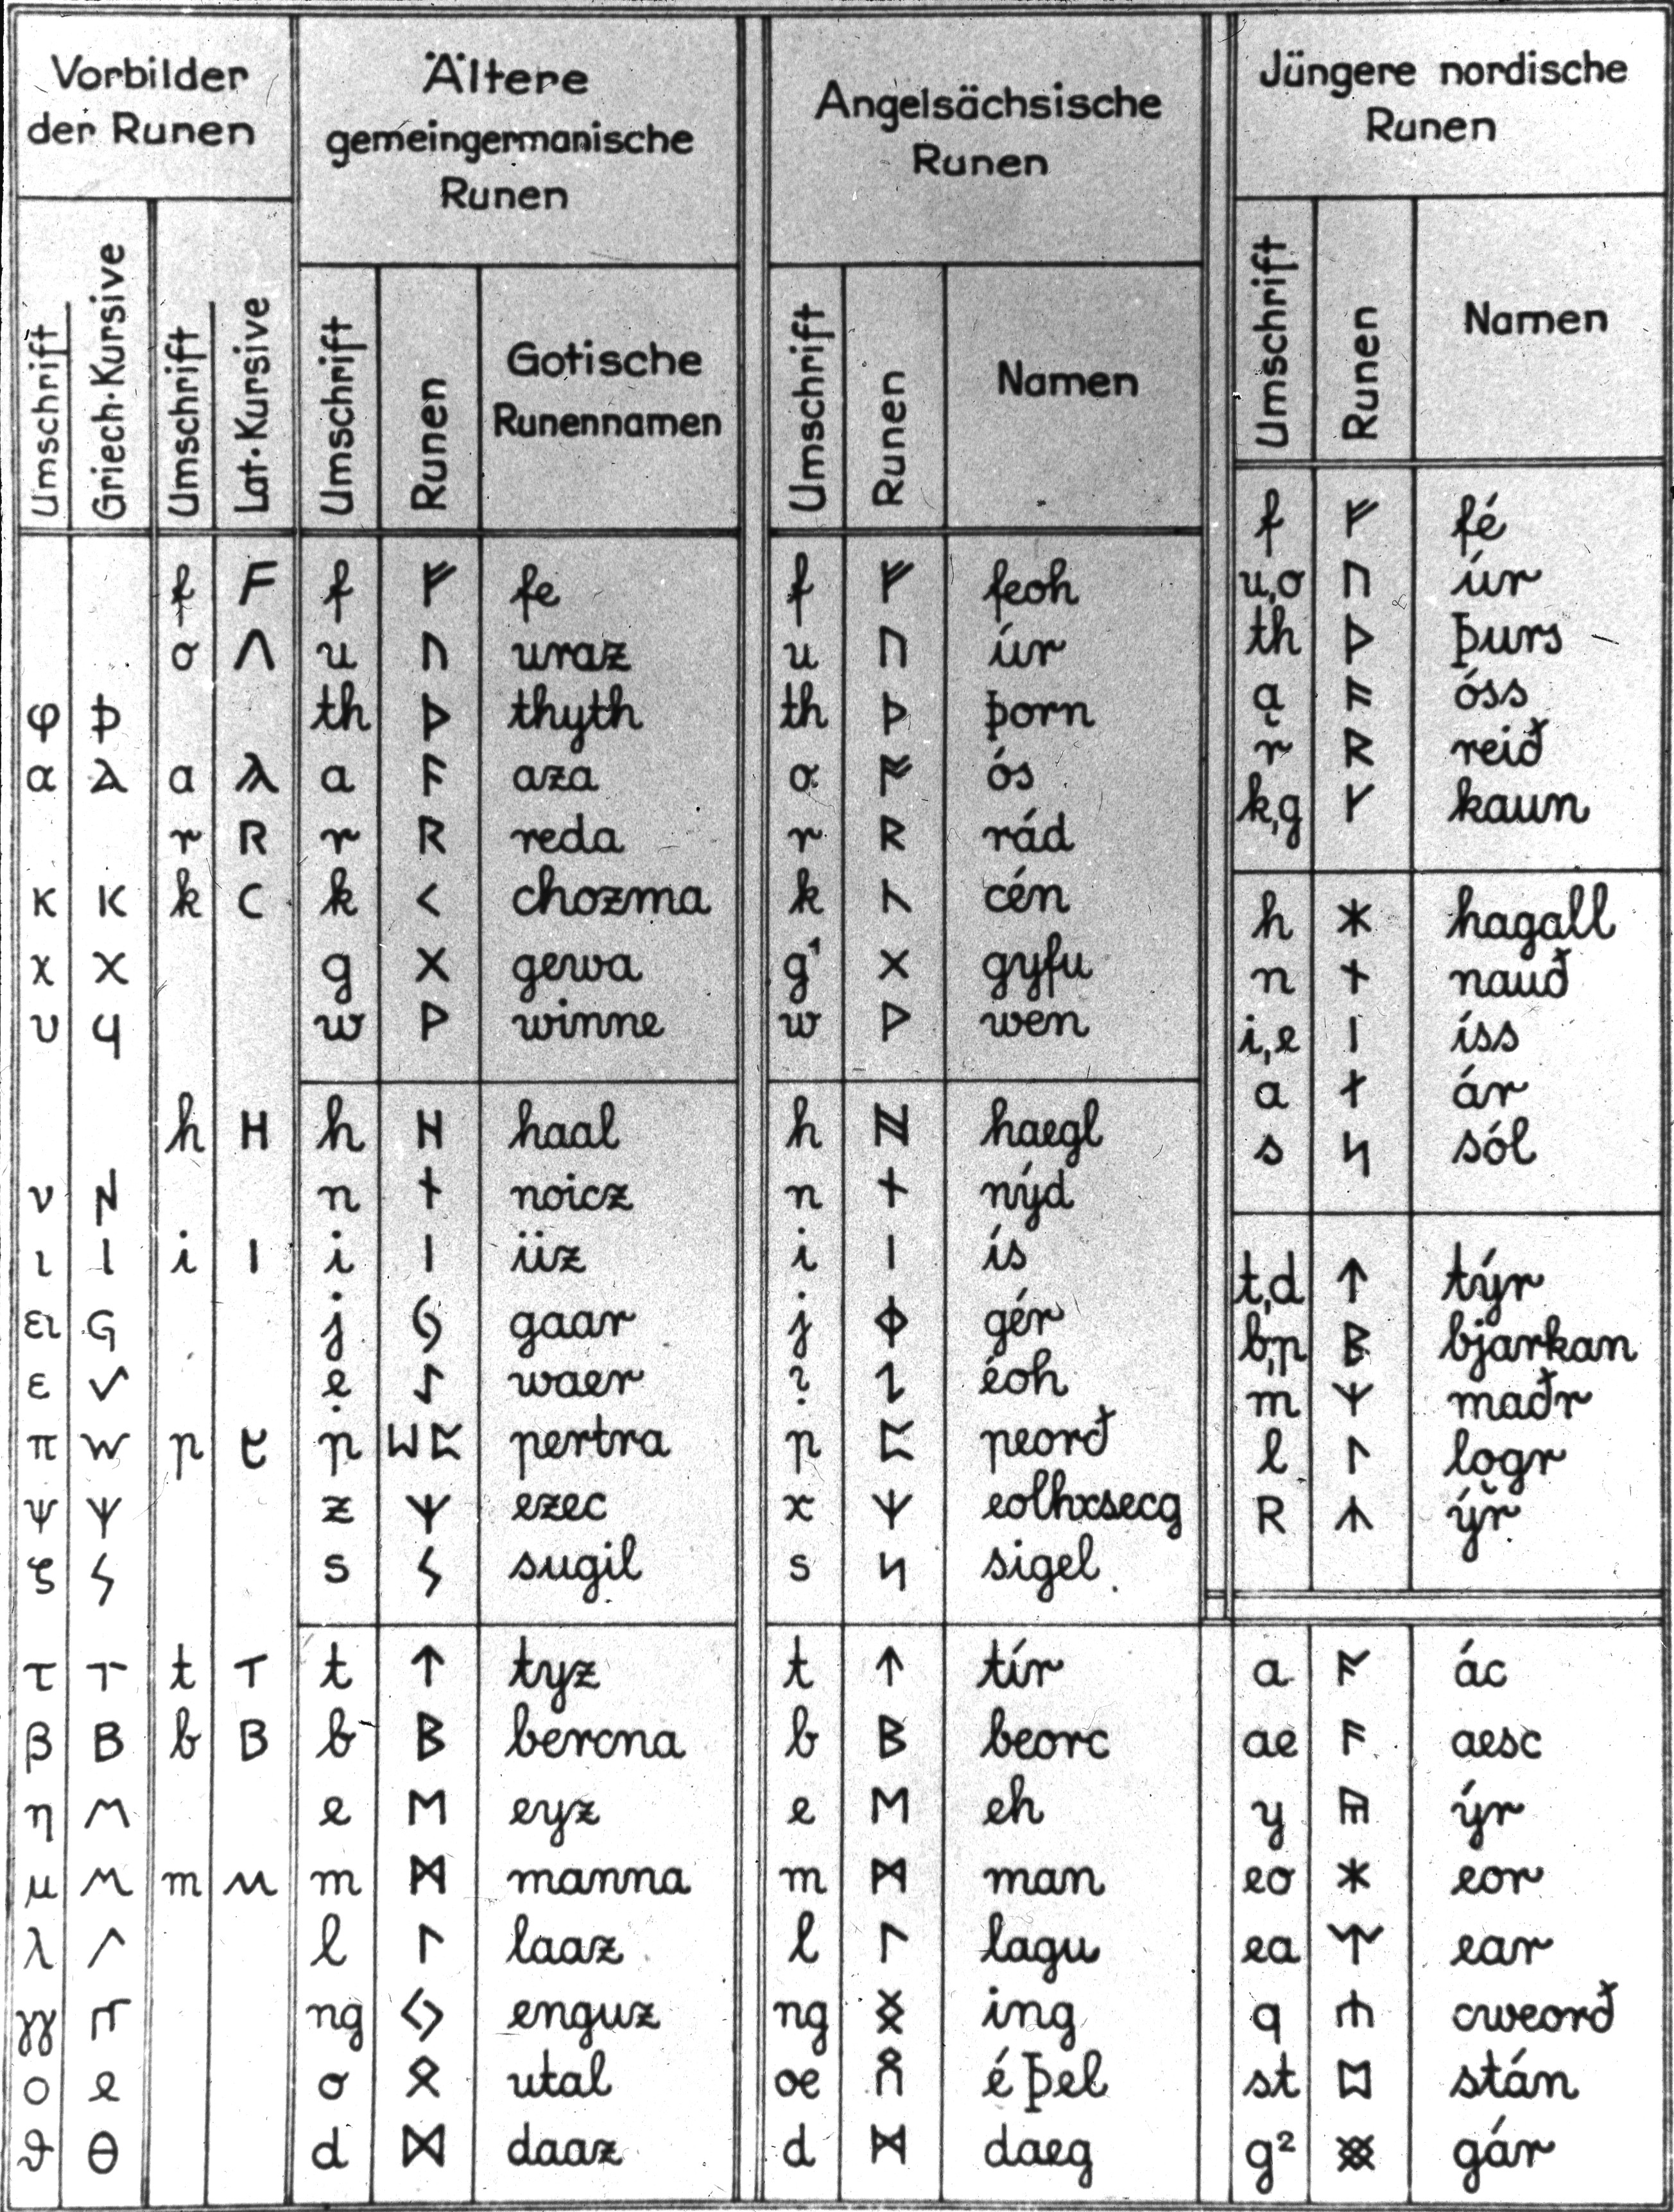 Vorbilder der Runen
Ältere gemeingermanische Runen
Angelsächsische Runen
Jüngere nordische Runen
Umschrift Griech. Kursive Umschrift Lat. Kursive
Umschrift Runen Gotische Runennamen
Umschrift Runen Namen
Umschrift Runen Namen
f F f ᚠ fe f ᚠ feoh
o Λ u ᚢ uraz u ᚢ úr
φ th ᚦ thyth th ᚦ þorn
α a λ a ᚨ aza o ᚩ ós
r R r ᚱ reda r ᚱ rád
κ K k C k ᚲ chozma k ᚳ cén
χ X g ᚷ gewa g¹ ᚷ gyfu
υ w ᚹ winne w ᚹ wen
h H h ᚺ haal h ᚻ haegl
ν n ᚾ noicz n ᚾ nýd
ι I i I i ᛁ iiz i ᛁ ís
ει j gaar j gér
ε ẹ waer ? ᛇ éoh
π p p ᛈ pertra p ᛈ peorð
ψ z ᛉ ezec x ᛉ eolhxsecg
ζ s ᛊ sugil s ᛋ sigel
τ T t T t ᛏ tyz t ᛏ tír
β B b B b ᛒ bercna b ᛒ beorc
η e ᛖ eyz e ᛖ eh
μ m m ᛗ manna m ᛗ man
λ l ᛚ laaz l ᛚ lagu
γγ ng enguz ng ᛝ ing
ο o ᛟ utal oe ᛟ éþel
ϑ θ d ᛞ daaz d ᛞ daeg
f ᚠ fé
u,o ᚢ úr
th ᚦ þurs
ą ᚬ óss
r ᚱ reið
k,g ᚴ kaun
h ᚼ hagall
n ᚾ nauð
i,e ᛁ íss
a ᛅ ár
s ᛋ sól
t,d ᛏ týr
b,p ᛒ bjarkan
m ᛘ maðr
l ᛚ logr
R ᛦ ýr
a ᚪ ác
ae ᚫ aesc
y ᚣ ýr
eo ᛡ eor
ea ᛠ ear
q ᛢ cweorð
st ᛥ stán
g² ᚸ gár